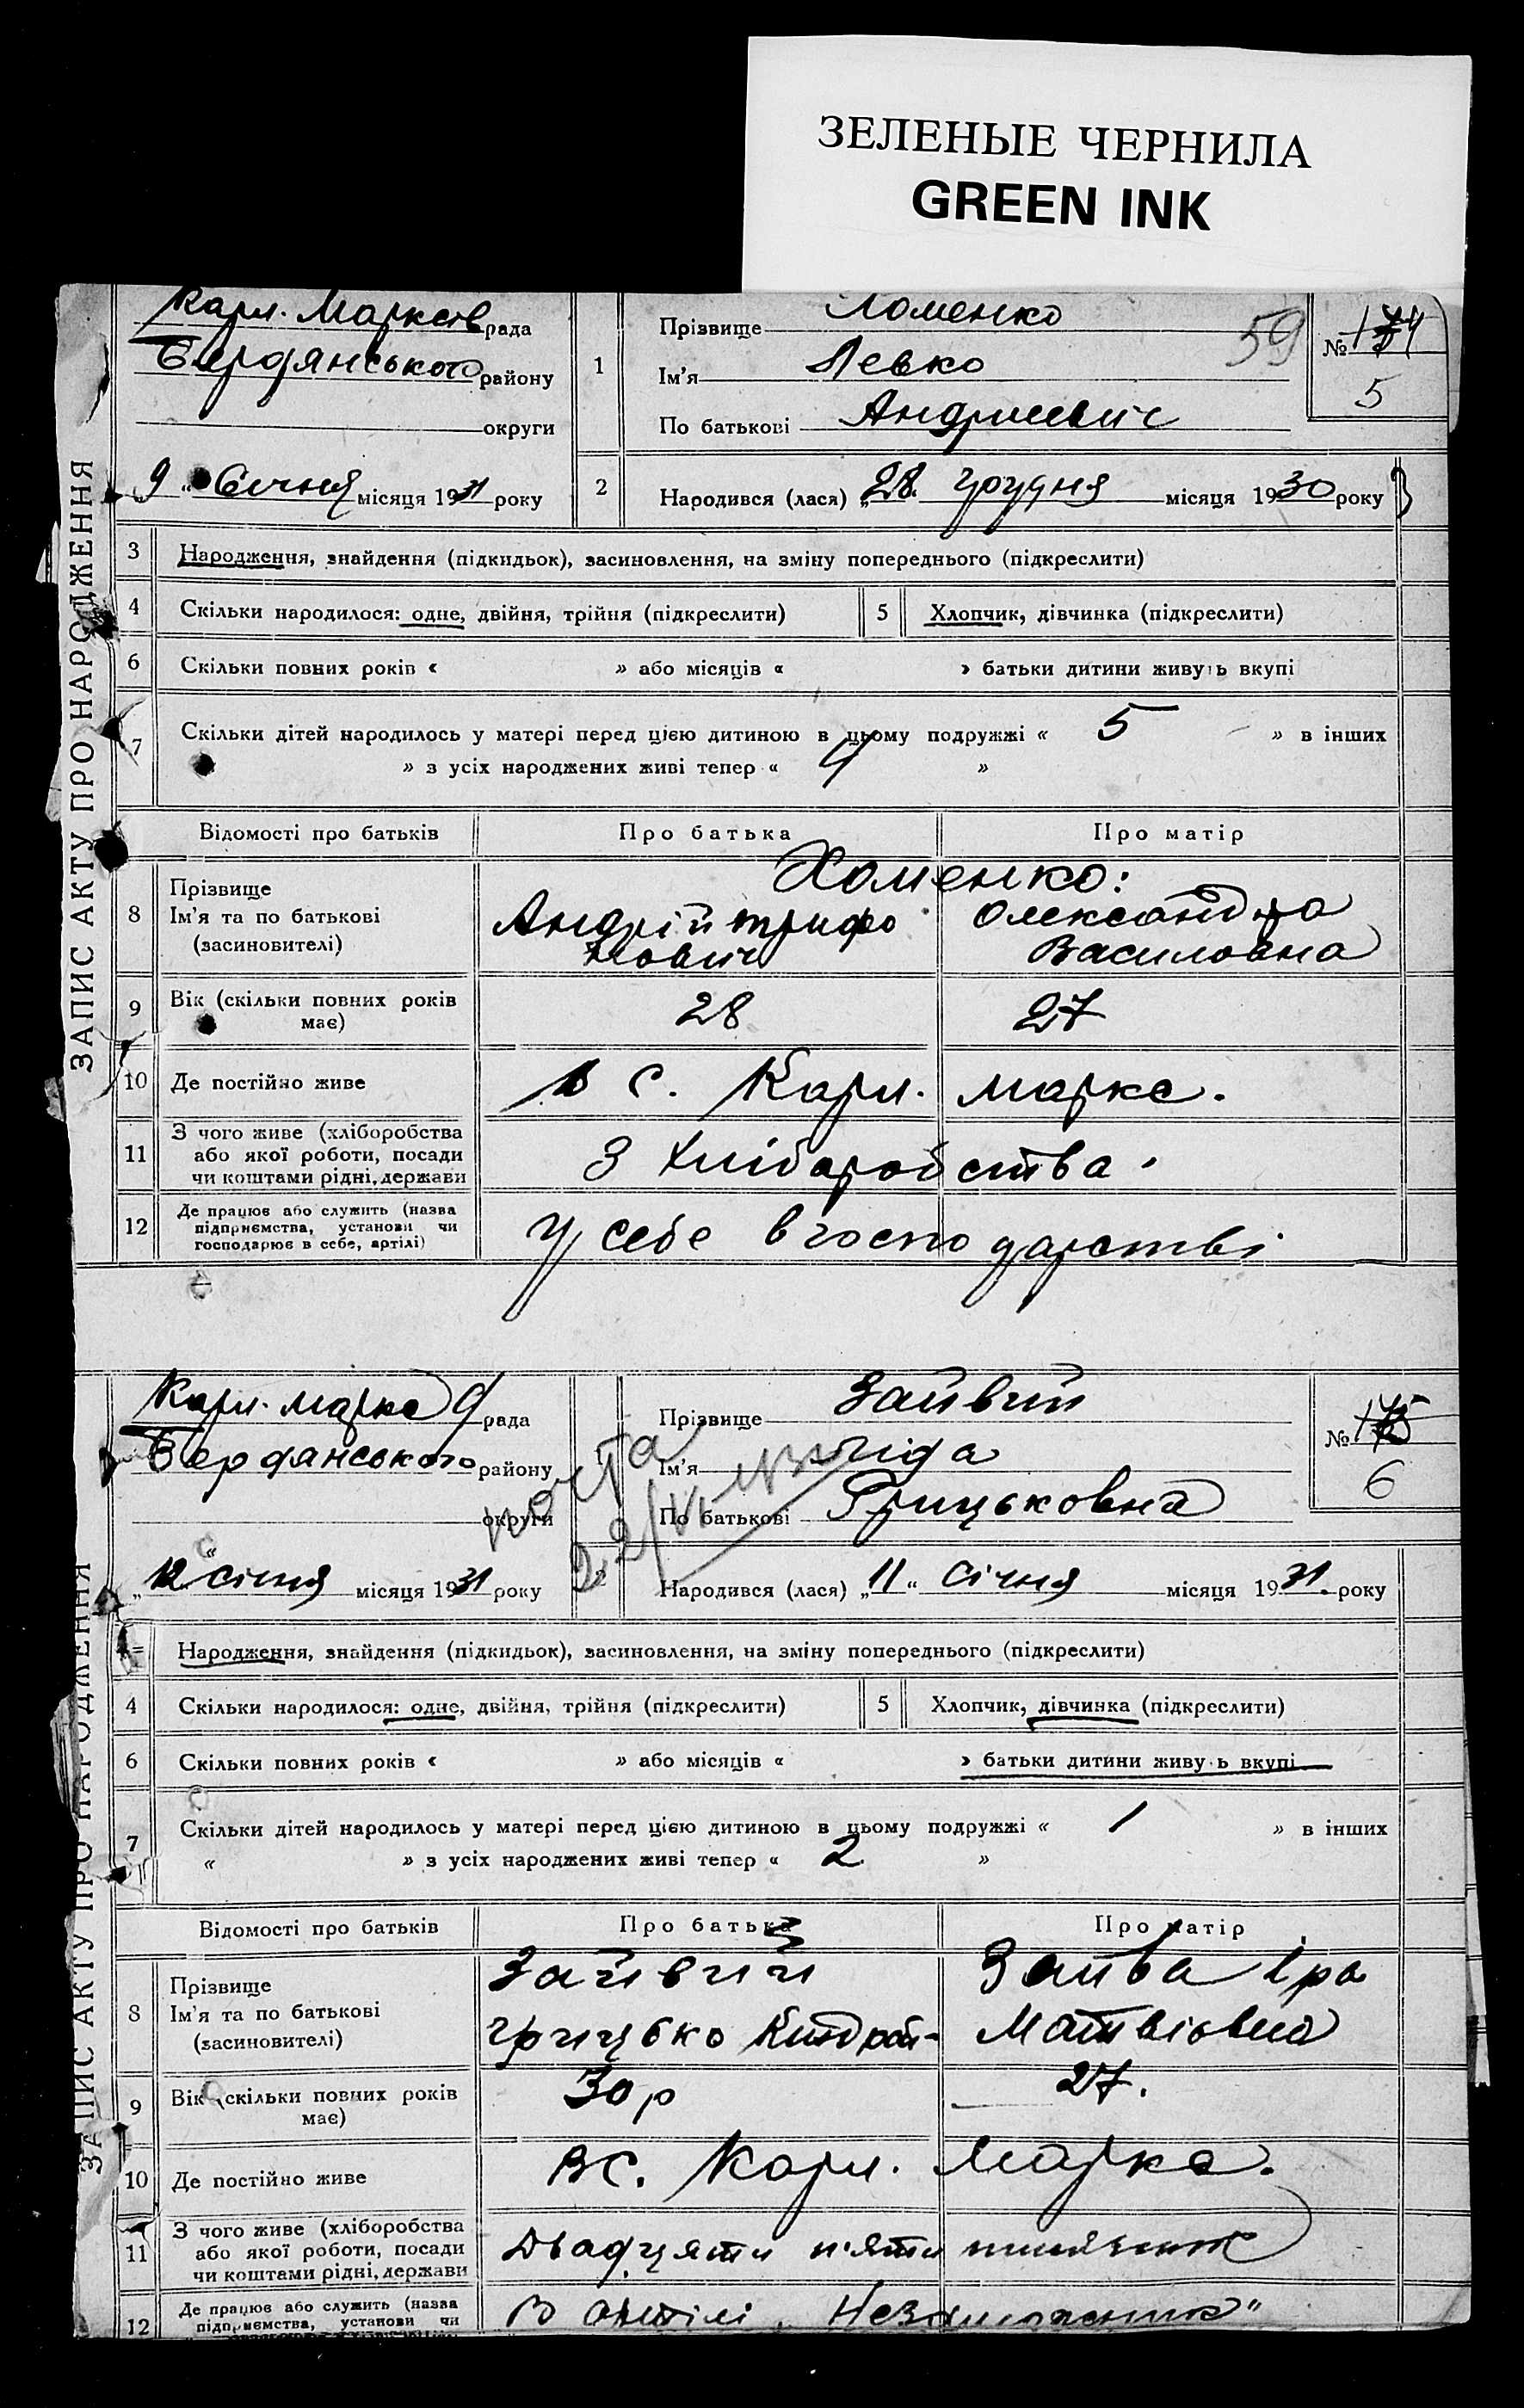 ЗЕЛЕНЫЕ ЧЕРНИЛА
GREEN INK
ЗАПИС АКТУ ПРО НАРОДЖЕННЯ
Карл. Марксів рада
Бердянського району
округи
„9“ Січня місяця 1931 року
1
Прізвище Хоменко
Ім'я Левко
По батькові Андрієвич
59
№ 174
5
2
Народився (лася) „28. грудня місяця 1930 року
3 Народження, знайдення (підкидьок), засиновлення, на зміну попереднього (підкреслити)
4 Скільки народилося: одне, двійня, трійня (підкреслити) 5 Хлопчик, дівчинка (підкреслити)
6 Скільки повних років « » або місяців « » батьки дитини живуть вкупі
7 Скільки дітей народилось у матері перед цією дитиною в цьому подружжі « 5 » в інших
» з усіх народжених живі тепер « 4 »
Відомості про батьків Про батька Про матір
8 Прізвище
Ім'я та по батькові
(засиновителі)
Хоменко:
Андрій Трифо
нович
Олександра
Василовна
9 Вік (скільки повних років
має)
28 27
10 Де постійно живе в с. Карл. Маркс.
11 З чого живе (хліборобства
або якої роботи, посади
чи коштами рідні, держави
З хліборобства.
12 Де працює або служить (назва
підприємства, установи чи
господарює в себе, артілі)
У себе в господарстві
ЗАПИС АКТУ ПРО НАРОДЖЕННЯ
Карл. Маркс рада
Бердянського району
округи
„12“ січня місяця 1931 року
Прізвище Зайвий
Ім'я Ліда
По батькові Грицьковна
№ 175
6
Народився (лася) „11“ Січня місяця 1931. року
Народження, знайдення (підкидьок), засиновлення, на зміну попереднього (підкреслити)
4 Скільки народилося: одне, двійня, трійня (підкреслити) 5 Хлопчик, дівчинка (підкреслити)
6 Скільки повних років « » або місяців « » батьки дитини живуь вкупі
7 Скільки дітей народилось у матері перед цією дитиною в цьому подружжі « 1 » в інших
« » з усіх народжених живі тепер « 2 »
Відомості про батьків Про батька Про матір
8 Прізвище
Ім'я та по батькові
(засиновителі)
Зайвий
Грицько Киндрат-
Зайва Іра
Матвіовна
9 Вік (скільки повних років
має)
30 р 27.
10 Де постійно живе В с. Карл. Маркс.
11 З чого живе (хліборобства
або якої роботи, посади
чи коштами рідні, держави
Двадцяти п'яти тисячник
12 Де працює або служить (назва
підприємства, установи чи
В артілі „Незаможник“